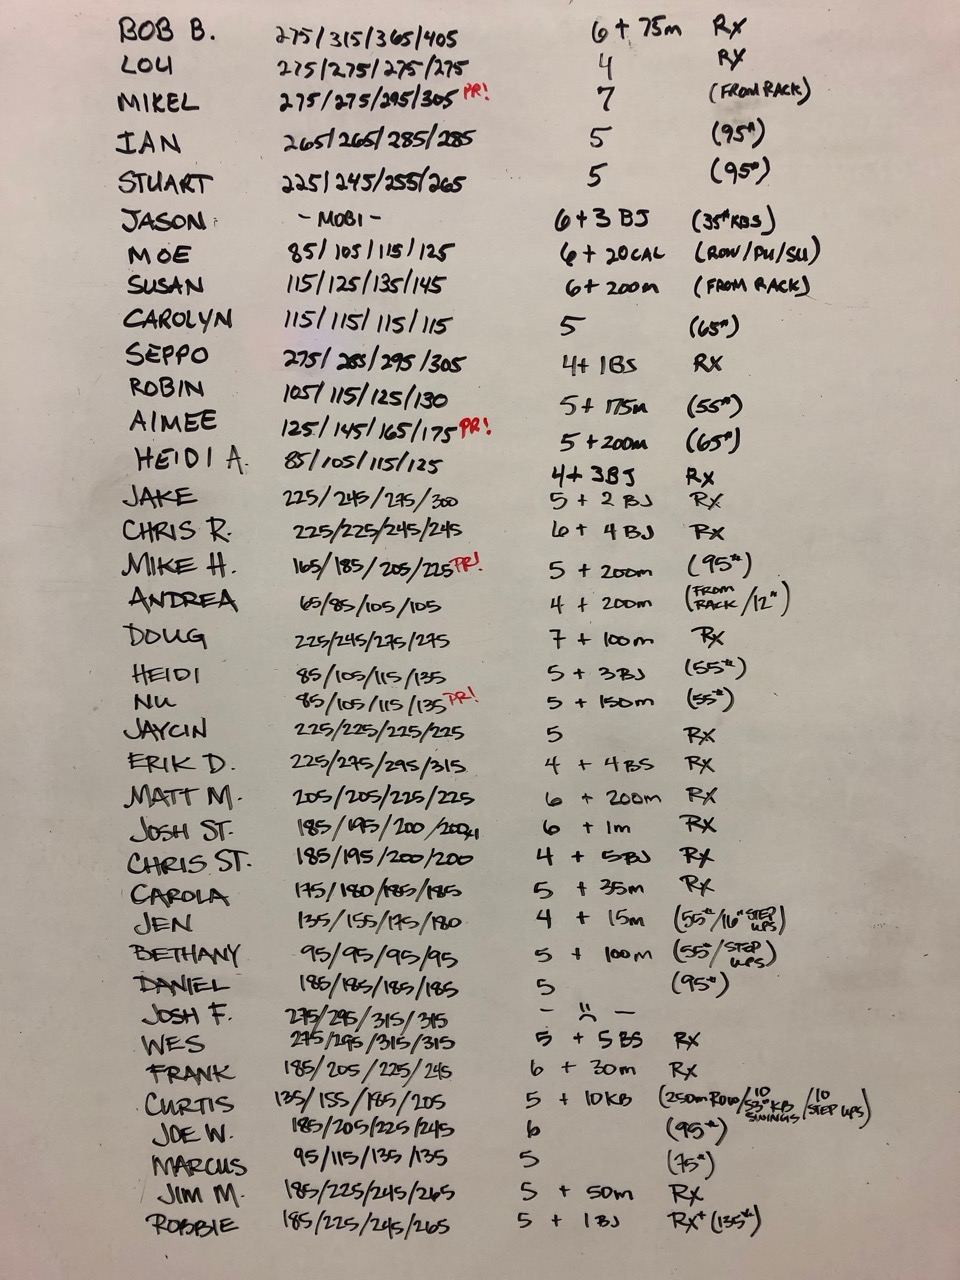 BOB B. 275/315/365/405 6 + 75m RX
LOU 275/275/275/275 4 RX
MIKEL 275/275/295/305 PR! 7 (FROM RACK)
IAN 265/265/285/285 5 (95#)
STUART 225/245/255/265 5 (95#)
JASON - MOBI - 6+3 BJ (35# KBS)
MOE 85/105/115/125 6 + 20CAL (ROW/PU/SU)
SUSAN 115/125/135/145 6+ 200m (FROM RACK)
CAROLYN 115/115/115/115 5 (65#)
SEPPO 275/285/295/305 4+ 1BS RX
ROBIN 105/115/125/130 5 + 175m (55#)
AIMEE 125/145/165/175 PR! 5 +200m (65#)
HEIDI A. 85/105/115/125 4+ 3BJ RX
JAKE 225/245/275/300 5 + 2 BJ RX
CHRIS R. 225/225/245/245 6 + 4 BJ RX
MIKE H. 165/185/205/225 PR! 5 + 200m (95#)
ANDREA 65/85/105/105 4 + 200m (FROM RACK/12")
DOUG 225/245/275/275 7 + 100m RX
HEIDI 85/105/115/135 5 + 3BJ (55#)
NU 85/105/115/135 PR! 5 + 150m (55#)
JAYCIN 225/225/225/225 5 RX
ERIK D. 225/275/295/315 4 + 4BS RX
MATT M. 205/205/225/225 6 + 200m RX
JOSH ST. 185/195/200/200x1 6 + 1m RX
CHRIS ST. 185/195/200/200 4 + 5BJ RX
CAROLA 175/180/185/185 5 + 35m RX
JEN 135/155/175/180 4 + 15m (55#/16" STEP UPS)
BETHANY 95/95/95/95 5 + 100m (55#/STEP UPS)
DANIEL 185/185/185/185 5 (95#)
JOSH F. 275/295/315/315 - ☹ -
WES 275/295/315/315 5 + 5BS RX
FRANK 185/205/225/245 6 + 30m RX
CURTIS 135/155/185/205 5 + 10KB (250m ROW/10 53# KB SWINGS/10 STEP UPS)
JOE W. 185/205/225/245 6 (95#)
MARCUS 95/115/135/135 5 (75#)
JIM M. 185/225/245/265 5 + 50m RX
ROBBIE 185/225/245/265 5 + 1BJ RX+ (135#)